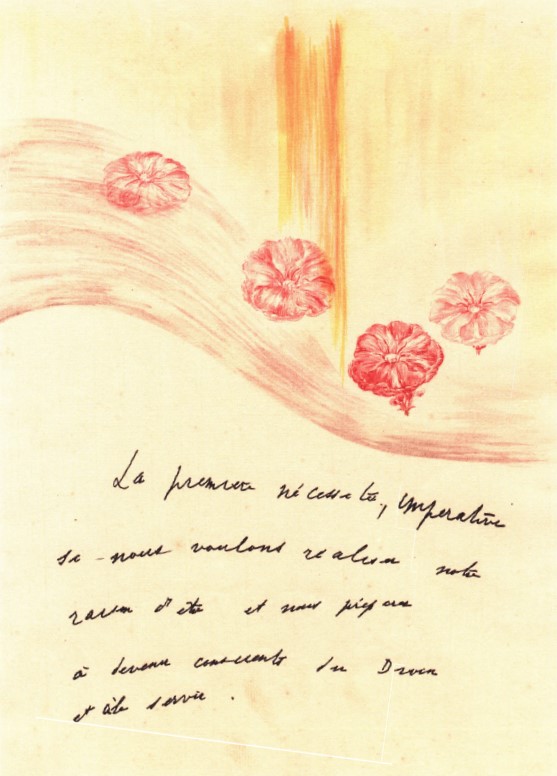 La première nécessité, impérative
si nous voulons réaliser notre
raison d'être et nous préparer
à devenir conscients du Divin
et à le servir.